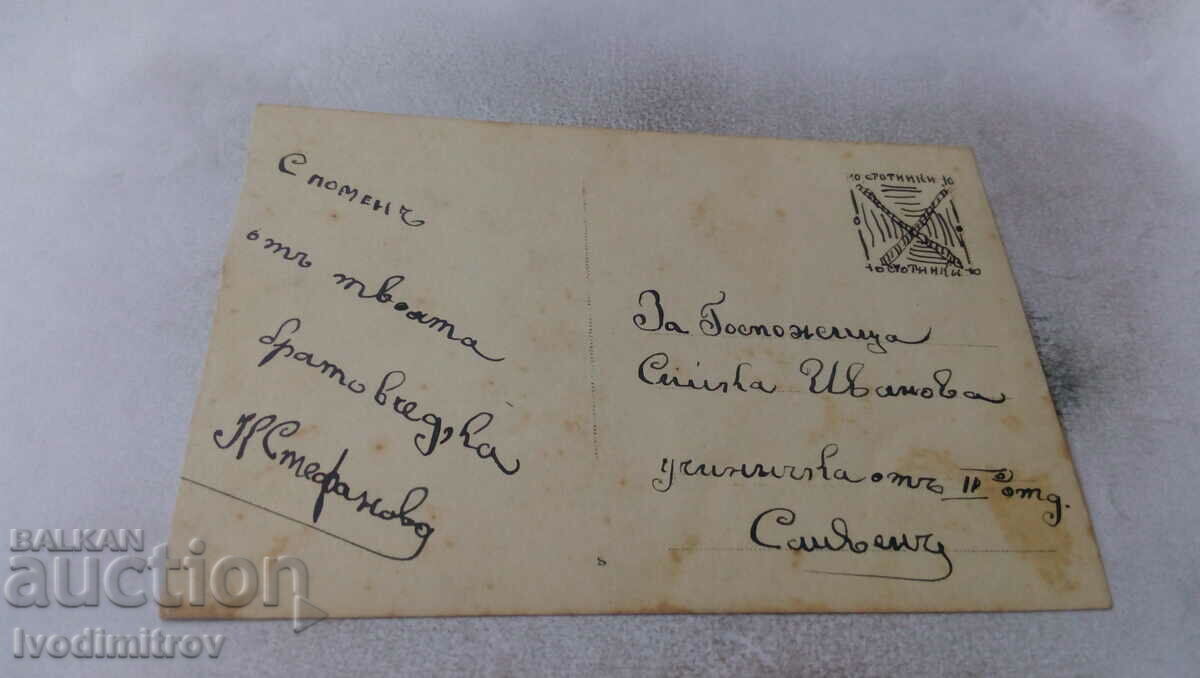 Споменъ
отъ твоята
братовчедка
К Стефанова
10 СТОТИНКИ 10
10 СТОТИНКИ 10
За Госпожица
Спийка Иванова
учиничка отъ II о отд.
Сливенъ
BALKAN
auction
Ivodimitrov